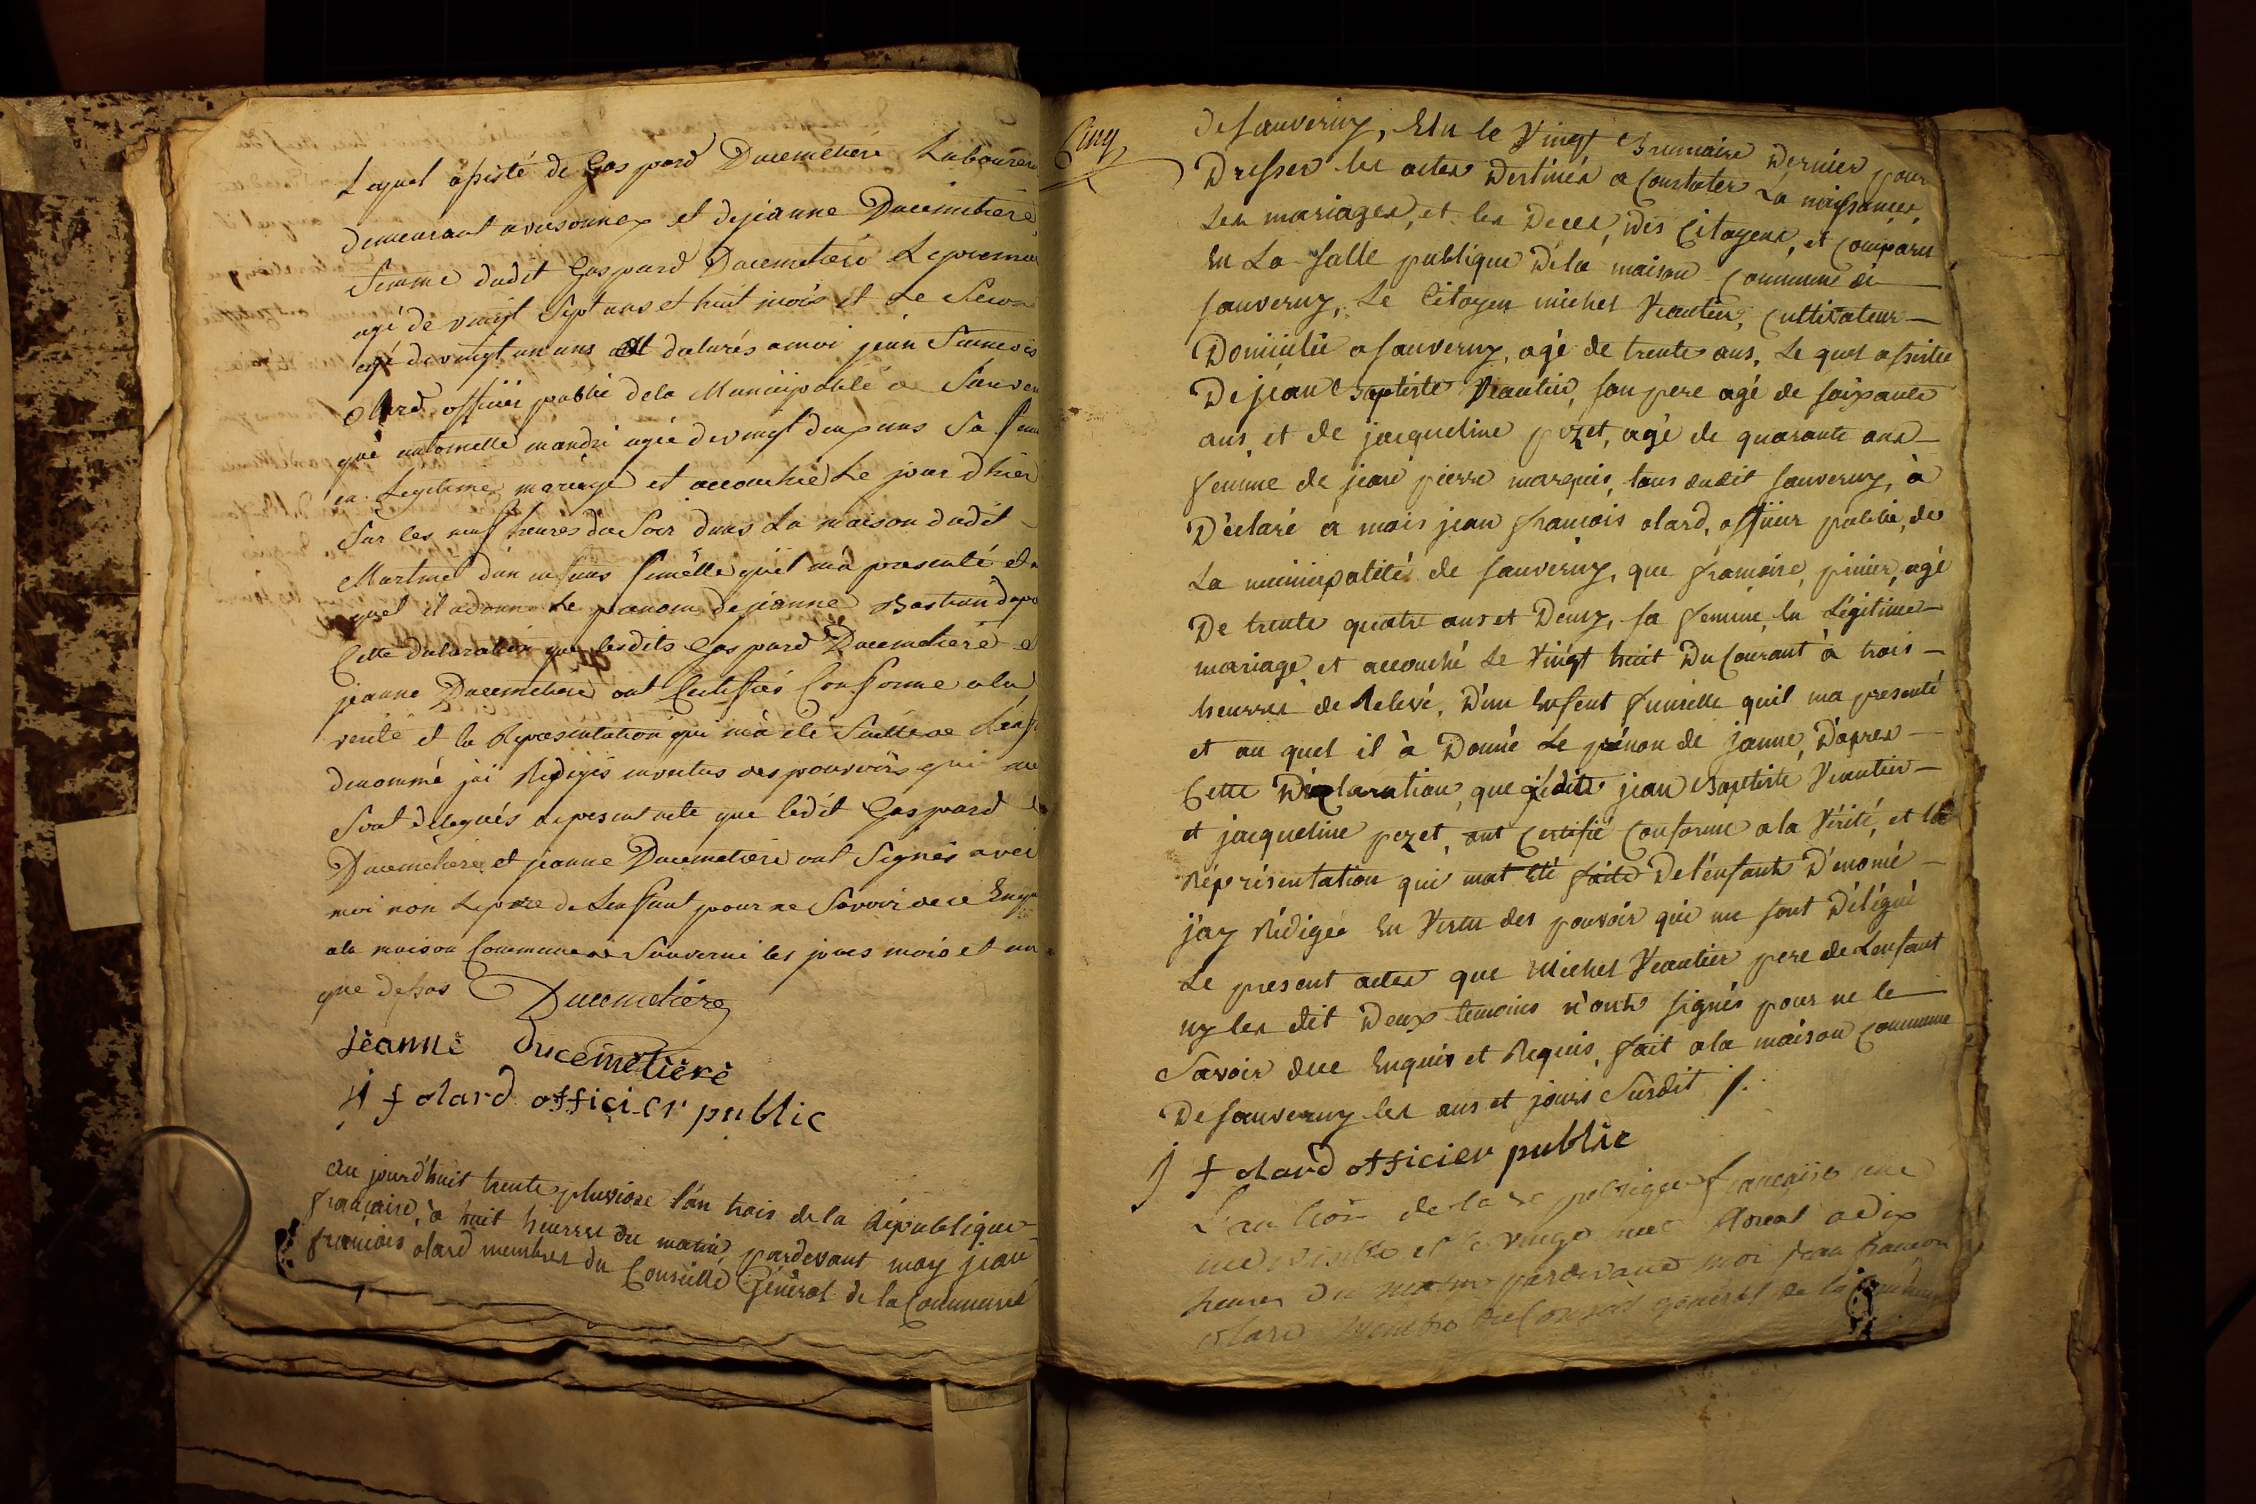 Lequel assisté de Gaspard Ducimetiere Laboureur
demeurant a versonnex et de jeanne Ducimetiere
femme dudit Gaspard Ducimetiere Le premier
agé de vingt sept ans et huit mois et Le Secon
agé de vingt un ans declarés a moi jean francois
olard officier public de la Municipalité de Sauver
que antoinette mandri agée de vingt deux ans Sa fem
en Legitime mariage et accouchée Le jour d'hier
Sur les neuf heures du Soir dans La maison dudit
Martinet d'un enfans fémelle qu'il m'a presenté et a
quel il a donné Le prenom de jeanne d'apr
Cette declaration que lesdits Gaspard Ducimetiere e
jeanne Ducimetiere ont Certiffiés Conforme a la
verité et la Representation qui m'a eté faitte de L'enf
denommé jai Redigés en vertus des pouvoirs qui me
Sont delegués le present acte que ledit Gaspard e
Ducimetiere et jeanne Ducimetiere ont Signés avec
moi non Le pere de Lenfant pour ne Savoir de ce Enqu
a la maison Commune de Sauverni les jours mois et an
que dessus Ducimetiere
jeanne ducimetiere
j f olard officier public
Au jourd'huit trente pluviose l'an trois de la République
française, à huit heurre du matin pardevant moy jean
françois olard membres du Conseille Général de la Commune
Cinq
de Sauverny, Elu le Vingt Brumaire Dernier pour
Dresser les actes Destinés a Constater La naissance,
Les mariages, et les Deces, Des Citoyens, et Comparu
En La Salle publique De la maison Commune de
Sauverny, Le Citoyen michel Veautier, Cultivateur
Domicilié a Sauverny, agé de trente ans, Le quel assistée
De jean Baptiste Veautier, son pere agé de soixante
ans, et de jacqueline pezet, agé de quarante ans
femme de jean pierre marquis, tous dudit Sauverny, à
Déclaré a mois jean françois olard, officier public, de
La municipalité de Sauverny, que françoise, pinier, agé
De trente quatre ans et Demy, sa femme, En Légitime
mariage, et accouché Le Vingt huit Du Courant à trois
heurres de Relevé, D'un Enfent fémelle quil ma presenté
et au quel il à Donné Le prénon de janne, D'apres
Cette Déclaration, que jean Baptiste Veautier
et jacqueline pezet, ont Certifié Conforme a la Vérité, et la
Réprésentation qui mat Eté faite De l'enfant D'énomé
j'ay Rédigée En Vertu des pouvoir qui me sont Délégué
Le present actes que Michel Veautier pere de Lenfant
ny les dit Deux temoins n'ont signés pour ne le
Savoir due Enquis et Requis, fait a la maison Commune
De Sauverny les ans et jours Susdit /.
j f olard officier public
L'an trois de la Re publique française une
indivisible et le vingt neuf floreal a dix
heures du matin pardevant moi jean francois
olard membre du Conseil general de la Commune